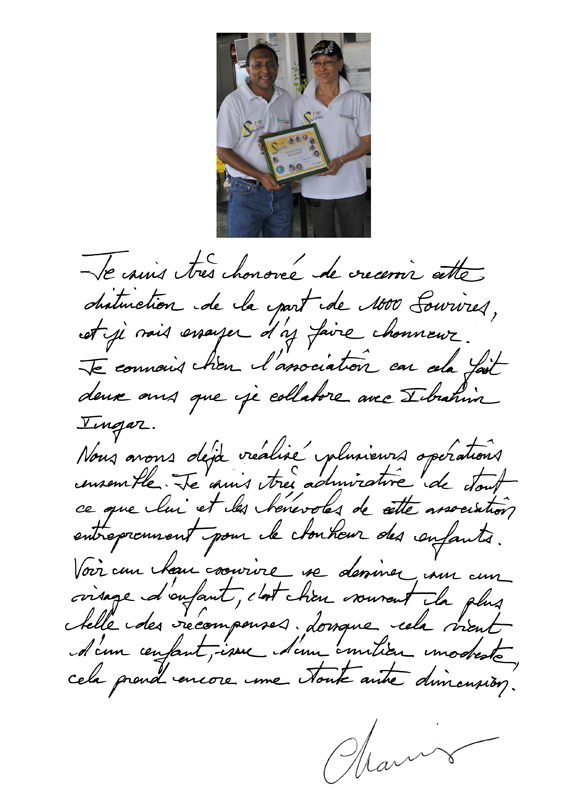 Je suis très honorée de recevoir cette
distinction de la part de 1000 Sourires,
et je vais essayer d'y faire honneur.
Je connais bien l'association car cela fait
deux ans que je collabore avec Ibrahim
Ingar.
Nous avons déjà réalisé plusieurs opérations
ensemble. Je suis très admirative de tout
ce que lui et les bénévoles de cette association
entreprennent pour le bonheur des enfants.
Voir un beau sourire se dessiner sur un
visage d'enfant, c'est bien souvent la plus
belle des récompenses. Lorsque cela vient
d'un enfant, issu d'un milieu modeste,
cela prend encore une toute autre dimension.